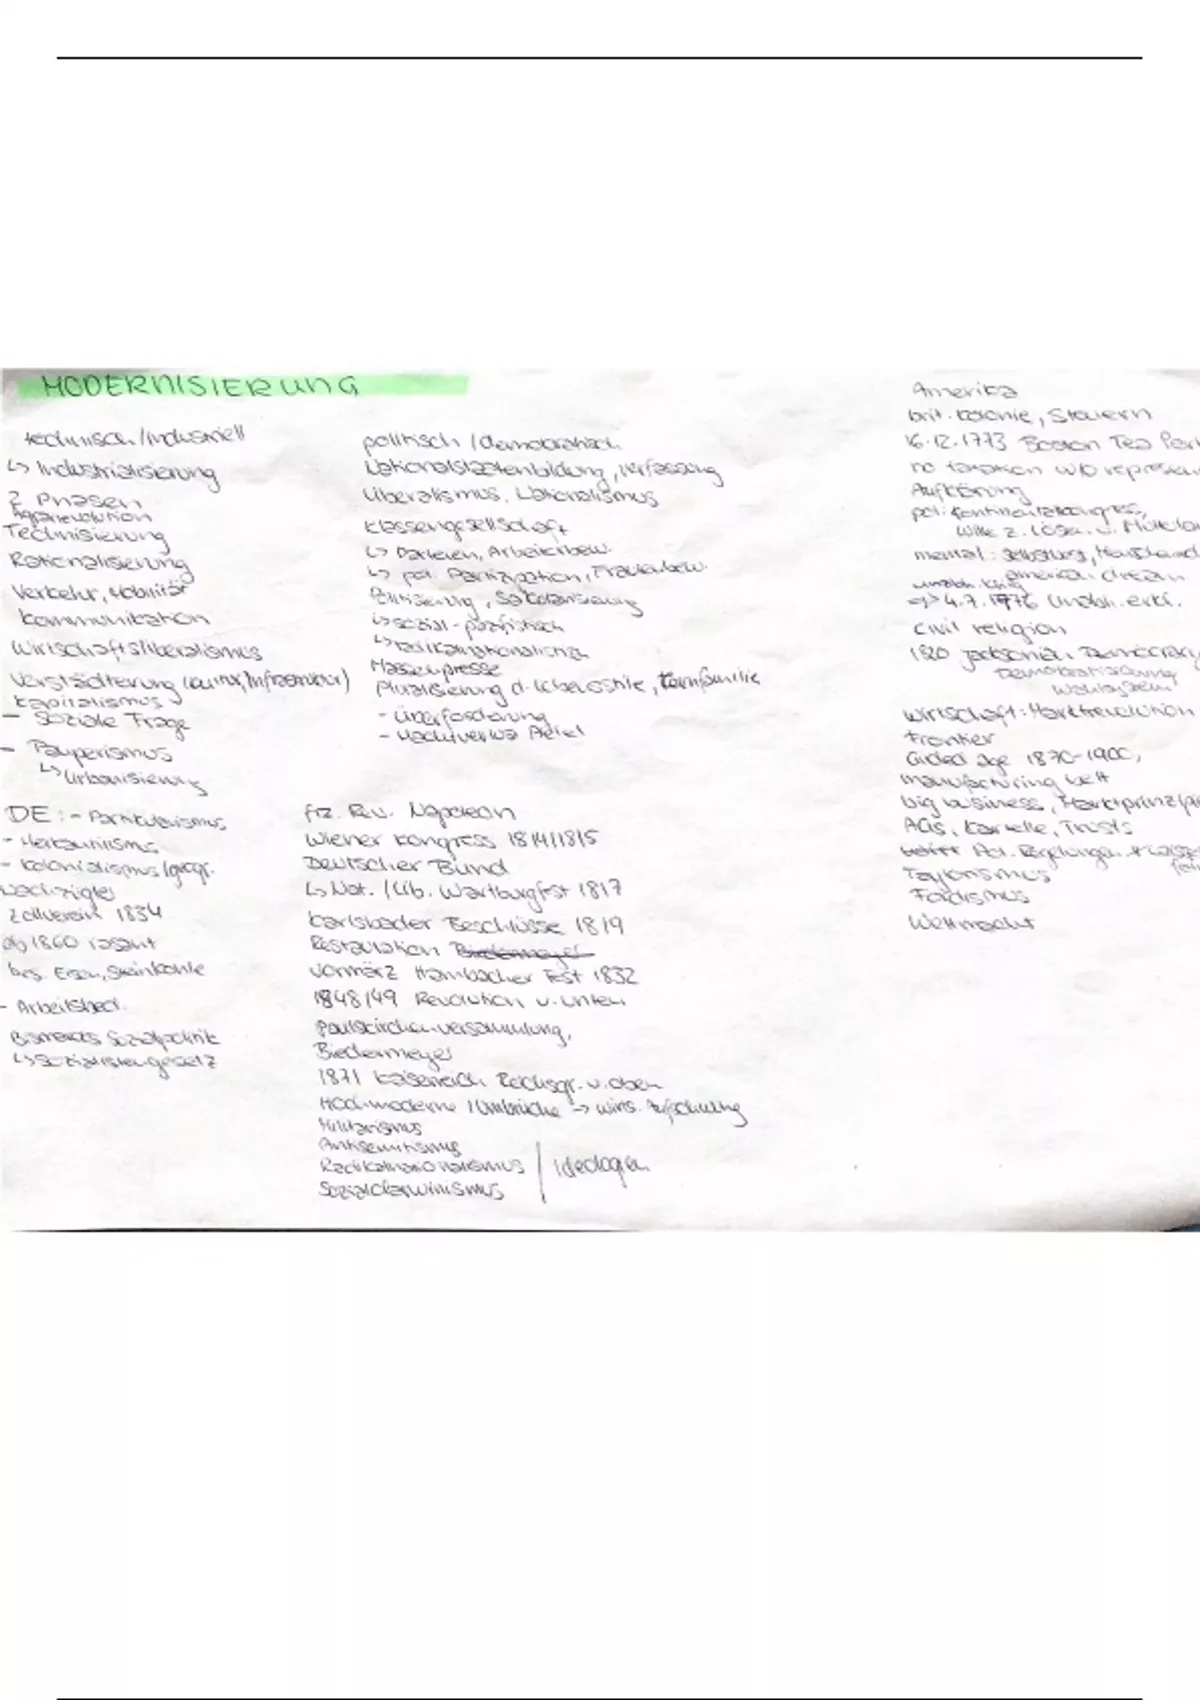 MODERNISIERUNG
technisch/industriell
↳ Industrialisierung
2 Phasen
Agrarrevolution
Technisierung
Rationalisierung
Verkehr, Mobilität
Kommunikation
Wirtschaftsliberalismus
Verstädterung (Kultur, Infrastruktur)
Kapitalismus
- Soziale Frage
- Pauperismus
↳ Urbanisierung
DE: - Partikularismus
- Merkantilismus
- Kolonialismus/geogr.
Nachzügler
Zollverein 1834
ab 1860 rasant
bes. Eisen, Steinkohle
- Arbeitsbed.
Bismarcks Sozialpolitik
↳ Sozialistengesetz
politisch/demokratisch
Nationalstaatenbildung, Verfassung
Liberalismus, Nationalismus
Klassengesellschaft
↳ Parteien, Arbeiterbew.
↳ pol. Partizipation, Frauenbew.
Politisierung, Säkularisierung
↳ sozial-pazifistisch
↳ radikalnationalistisch
Massenpresse
Pluralisierung d. Lebensstile, Kernfamilie
- Überforderung
- Nachtverwa
frz. Rev. Napoleon
Wiener Kongress 1814/1815
Deutscher Bund
↳ Nat./Lib. Wartburgfest 1817
Karlsbader Beschlüsse 1819
Restauration Biedermeyer
Vormärz Hambacher Fest 1832
1848/49 Revolution v. unten
Paulskirchenversammlung,
Biedermeyer
1871 Kaiserreich Reichsgr. v. oben
Hochmoderne/Umbrüche → wirs.
Militarismus
Antisemitismus
Radikalnationalismus
Sozialdarwinismus
Ideologien
Amerika
brit. Kolonie, Steuern
16.12.1773 Boston Tea Par
no taxation w/o represen
Aufklärung
pol: Kontinentalkongress,
Wille z. Lösen v. Mutterlan
mental:
american dream
=> 4.7.1776 Unabh. erkl.
civil religion
1820 Jacksonian Democracy
Demokratisierung
Wahlsystem
Wirtschaft: Marktrevolution
Frontier
Gilded Age 1870-1900,
manufacturing belt
big business, Marktprinzip
AGs, Kartelle, Trusts
Pol. Regelungen
Taylorismus
Fordismus
Weltmacht